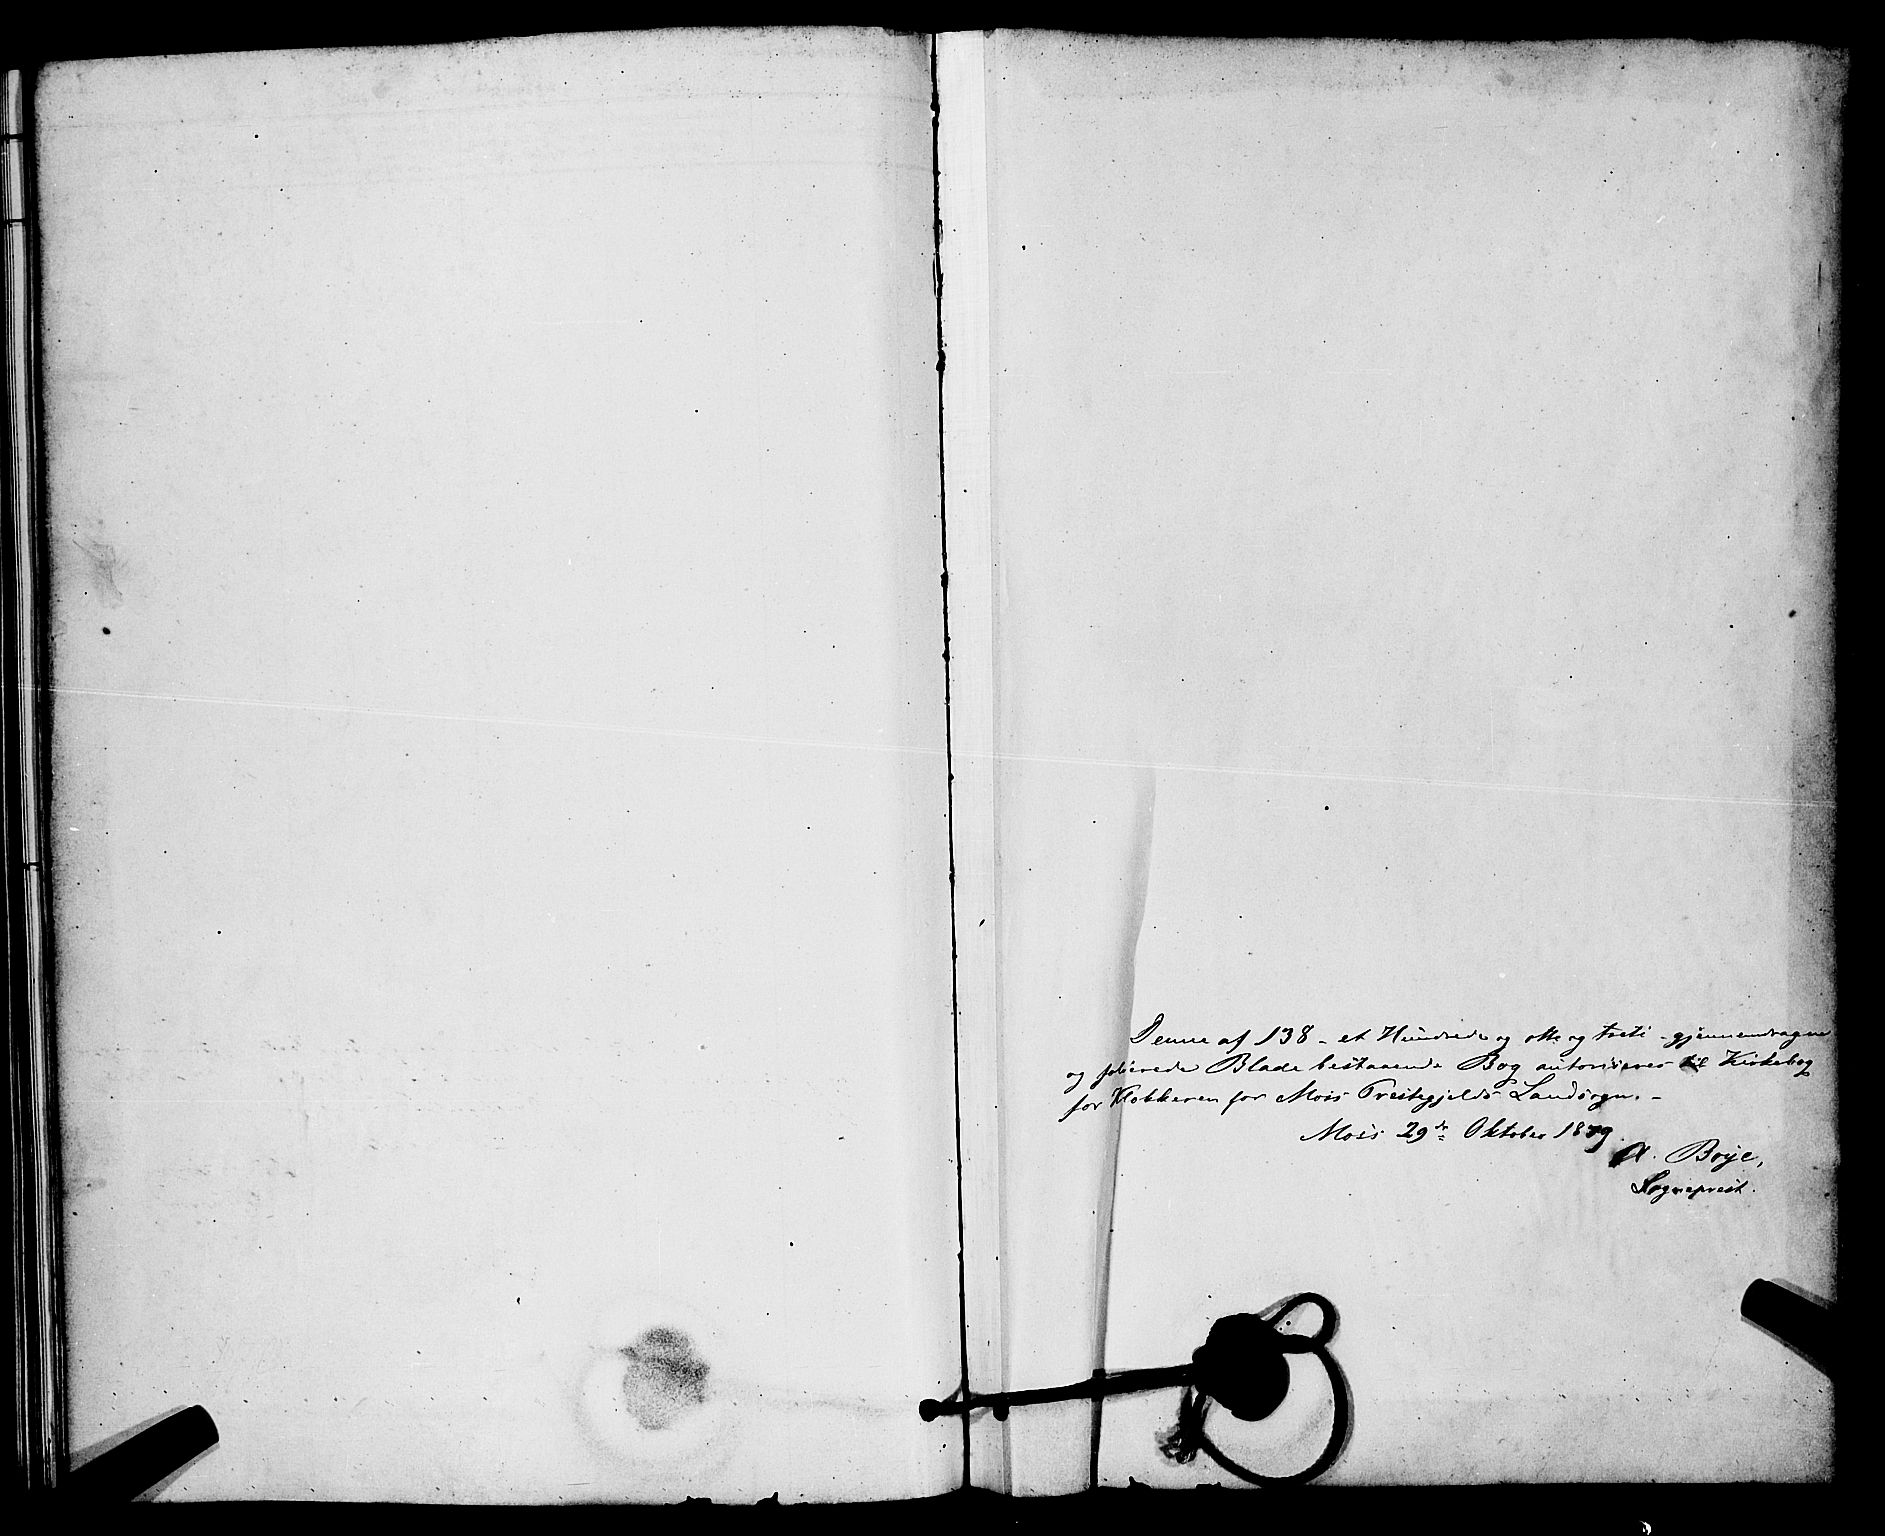 Denne af 138 - et Hundrede og otte og treti - gjennemdragne
og folierede Blade bestaaende Bog autoriseres til Kirkebog
for Klokkeren for Moss Prestegjelds Landsogn. -
Moss 29de Oktober 1879.
A. Boye,
Sogneprest.